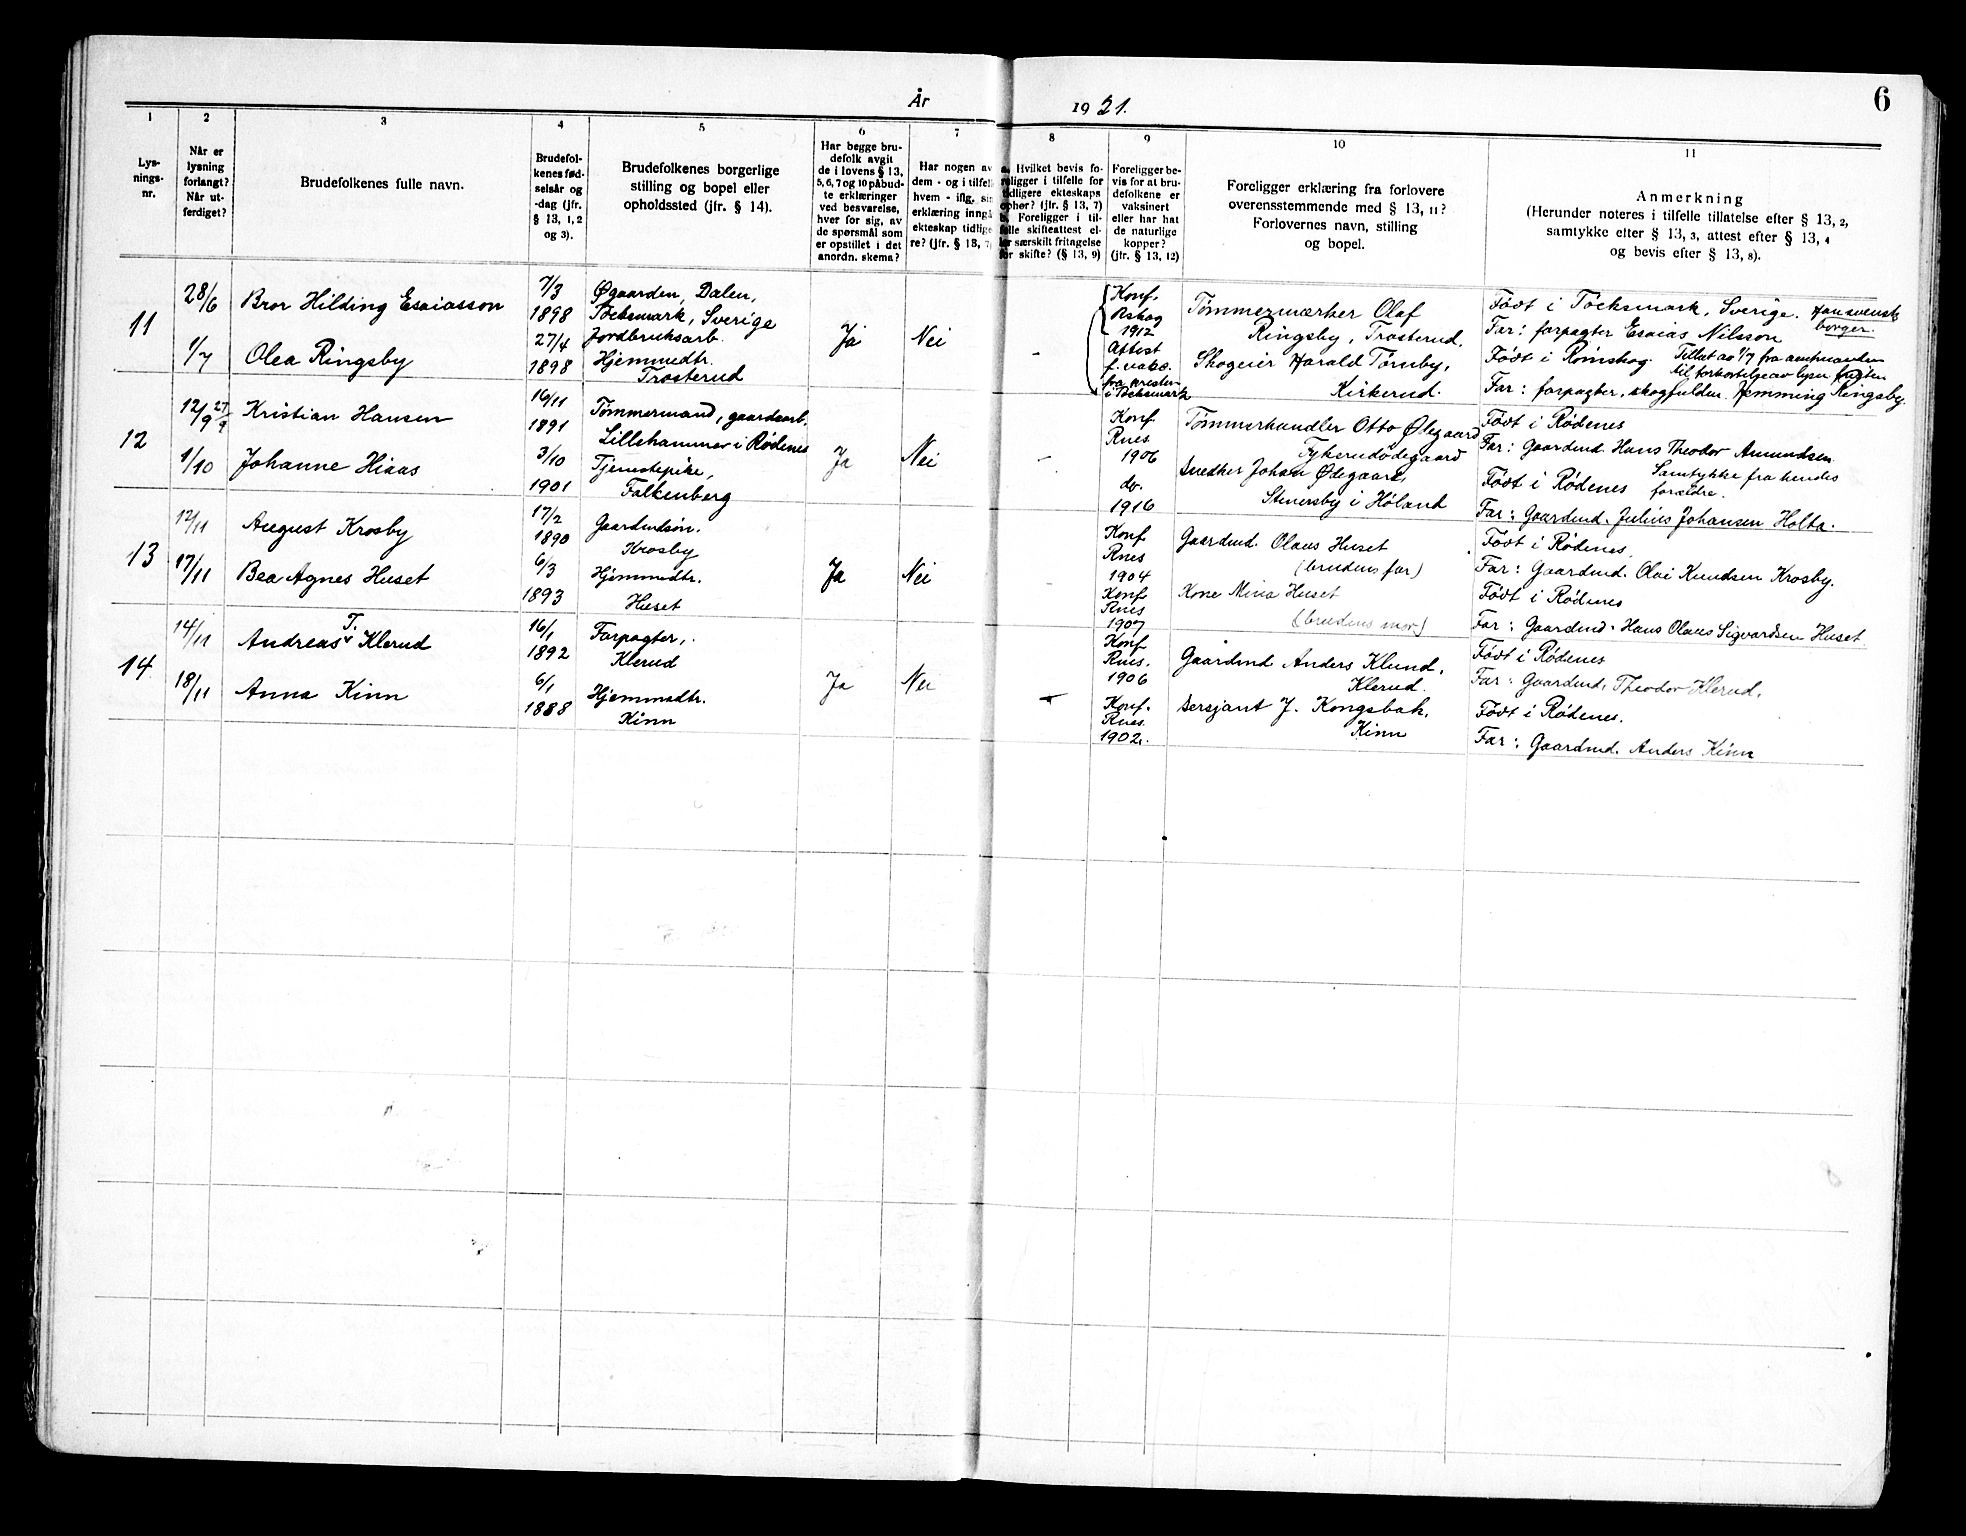 År 1921.
6
1
Lys-
nings-
nr.
2
Når er
lysning
forlangt?
Når ut-
ferdiget?
3
Brudefolkenes fulle navn.
4
Brudefol-
kenes fød-
selsår og
-dag (jfr.
§ 13, 1, 2
og 3).
5
Brudefolkenes borgerlige
stilling og bopel eller
opholdssted (jfr. § 14).
6
Har begge bru-
defolk avgit
de i lovens § 13,
5, 6, 7 og 10 påbud-
te erklæringer
ved besvarelse,
hver for sig, av
de spørsmål som
er opstillet i det
anordn. skema?
7
Har nogen av
dem - og i tilfelle
hvem - iflg. sin
erklæring inngå
ekteskap tidlige
re? (jfr. § 13, 7)
8
a. Hvilket bevis fo-
religger i tilfelle for
tidligere ekteskaps
opher? (jfr. § 13, 7)
b. Foreligger i til-
felle skifteattest el-
ler særskilt fritagelse
for skifte? (§ 13, 9)
9
Foreligger be-
vis for at bru-
defolkene er
vaksinert
eller har hat
de naturlige
kopper?
(jfr. § 13, 12)
10
Foreligger erklæring fra forlovere
overensstemmende med § 13, 11?
Forlovernes navn, stilling
og bopel.
11
Anmerkning
(Herunder noteres i tilfelle tillatelse efter § 13, 2,
samtykke efter § 13, 3, attest efter § 13, 4
og bevis efter § 13, 8).
11
28/6
1/7
Bror Hilding Esaiasson
Olea Ringsby
7/3
1898
27/4
1898
Øgaarden, Dalen,
Töcksmark, Sverige
Jordbruksarb.
Hjemmedtr.
Trosterud
Ja
Nei
-
Konf.
Rskog
1912
Attest
f. vaks.
fra presten
i Töcksmark
Tømmermærker Olaf
Ringsby, Trosterud.
Skogeier Harald Tørnby,
Kirkerud.
Født i Töcksmark, Sverige. Han svensk
borger.
Far: forpagter Esaias Nilsson
Født i Rømskog. Tillat av 1/7 fra amtmanden
til forkortelse av lysn. fristen
Far: forpagter, skogfulden. Hemming Ringsby
12
12/9 27/9
1/10
Kristian Hansen
Johanne Hiaas
16/11
1891
3/10
1901
Tømmermand, gaardsarb.
Lillehammer i Rødenes
Tjenestepike,
Falkenberg
Ja
Nei
-
Konf
Rnes
1906
do.
1916
Tømmerhandler Otto Ødegaard
Tykerudødegaard
Snedker Johan Ødegaard,
Stenersby i Høland
Født i Rødenes
Far: Gaardmd. Hans Theodor Amundsen
Samtykke fra hendes
forældre.
Født i Rødenes
Far: Gaardmd. Julius Johansen Holta.
13
12/11
17/11
August Krosby
Bea Agnes Huset
17/2
1890
6/3
1893
Gaardmdsøn.
Krosby
Hjemmedtr.
Huset
Ja
Nei
-
Konf
Rnes
1904
Konf
Rnes
1907
Gaardmd. Olaus Huset
(brudens far)
Kone Mina Huset
(brudens mor)
Født i Rødenes,
Far: Gaardmd. Olai Knudsen Krosby.
Født i Rødenes
Far: Gaardmd. Hans Olaus Sigvardsen Huset
14
14/11
18/11
T.
Andreas Klerud
Anna Kinn
16/1
1892
6/1
1888
Forpagter,
Klerud
Hjemmedtr.
Kinn
Ja
Nei
-
Konf
Rnes.
1906
Konf.
Rnes.
1902.
Gaardmd Anders Klerud,
Klerud.
Sersjant J. Kongsbak,
Kinn
Født i Rødenes
Far: Gaardmd. Theodor Klerud,
Født i Rødenes.
Far: Gaardmd. Anders Kinn